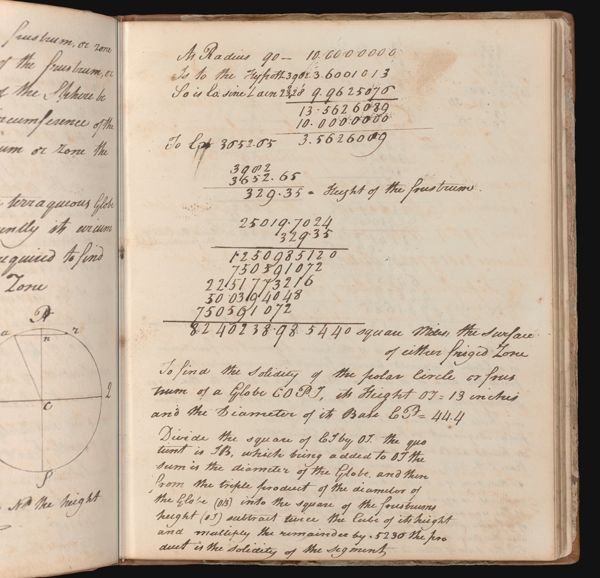 frustrum, or zone
of the frustrum, or
of the Sphere be
circumference of the
um or zone the
terraqueous Globe
ently its circum
required to find
Zone
P
a n r
C
2
P
the hight
As Radius 90 — 10.0000000
Is to the Hypoth 3982 3.6001013
So is Co. sine Lacn 23½ 9.9625076
13.5626089
10.0000000
To Log 3652.65 3.5626089
3982
3652.65
329.35 = Height of the frustrum.
25019.7024
329.35
1250985120
750591072
2251773216
500394048
750591072
8240238.985440 square Miles, the surface
of either frigid Zone
To find the solidity of the polar Circle or frus
trum of a Globe COPI, its Height OI = 13 inches
and the Diameter of its Base EP = 44.4
Divide the square of EI by OI. the quo
tient is IB, which being added to OI the
sum is the diameter of the Globe. and then
from the triple product of the diameter of
the Globe (OB) into the square of the frustrums
height (OI) subtract twice the Cube of its height
and multiply the remainder by .5236 the pro
duct is the solidity of the segment,